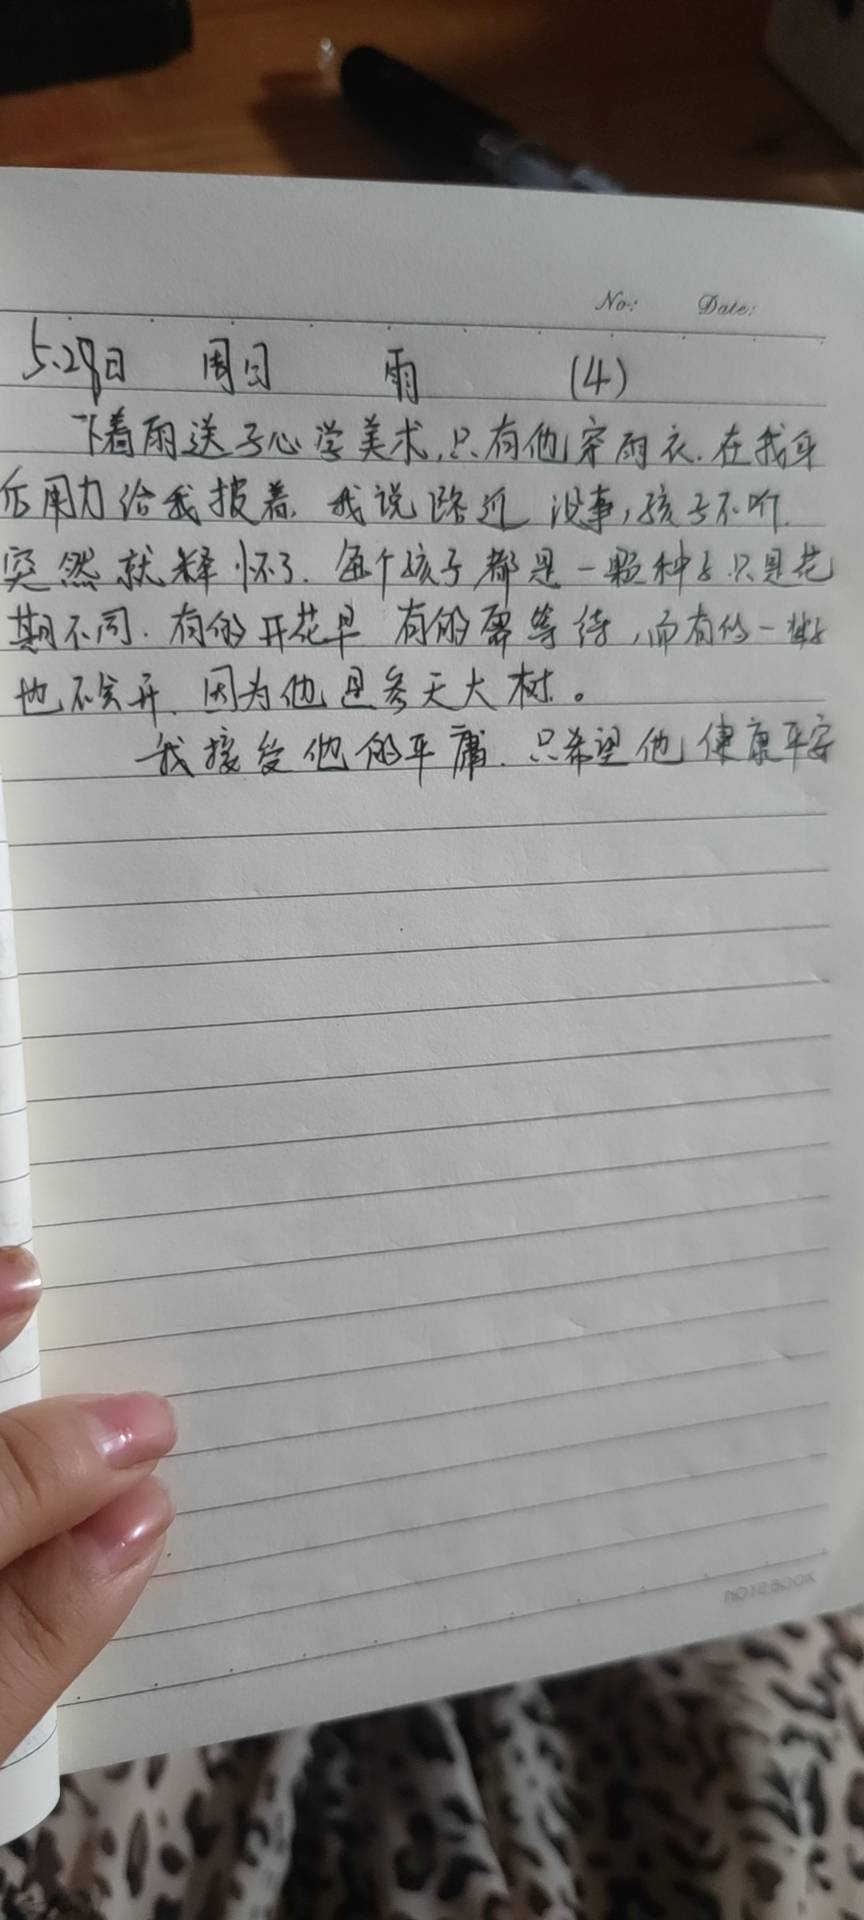 No: Date:
5.29日 周日 雨 (4)
下着雨送子心学美术,只有他穿雨衣.在我身
后用力给我披着.我说路近 没事,孩子不听.
突然就释怀了.每个孩子都是一颗种子只是花
期不同.有的开花早 有的需等待,而有的一
也不会开.因为他是参天大树。
我接受他的平庸.只希望他健康平安
NOTEBOOK